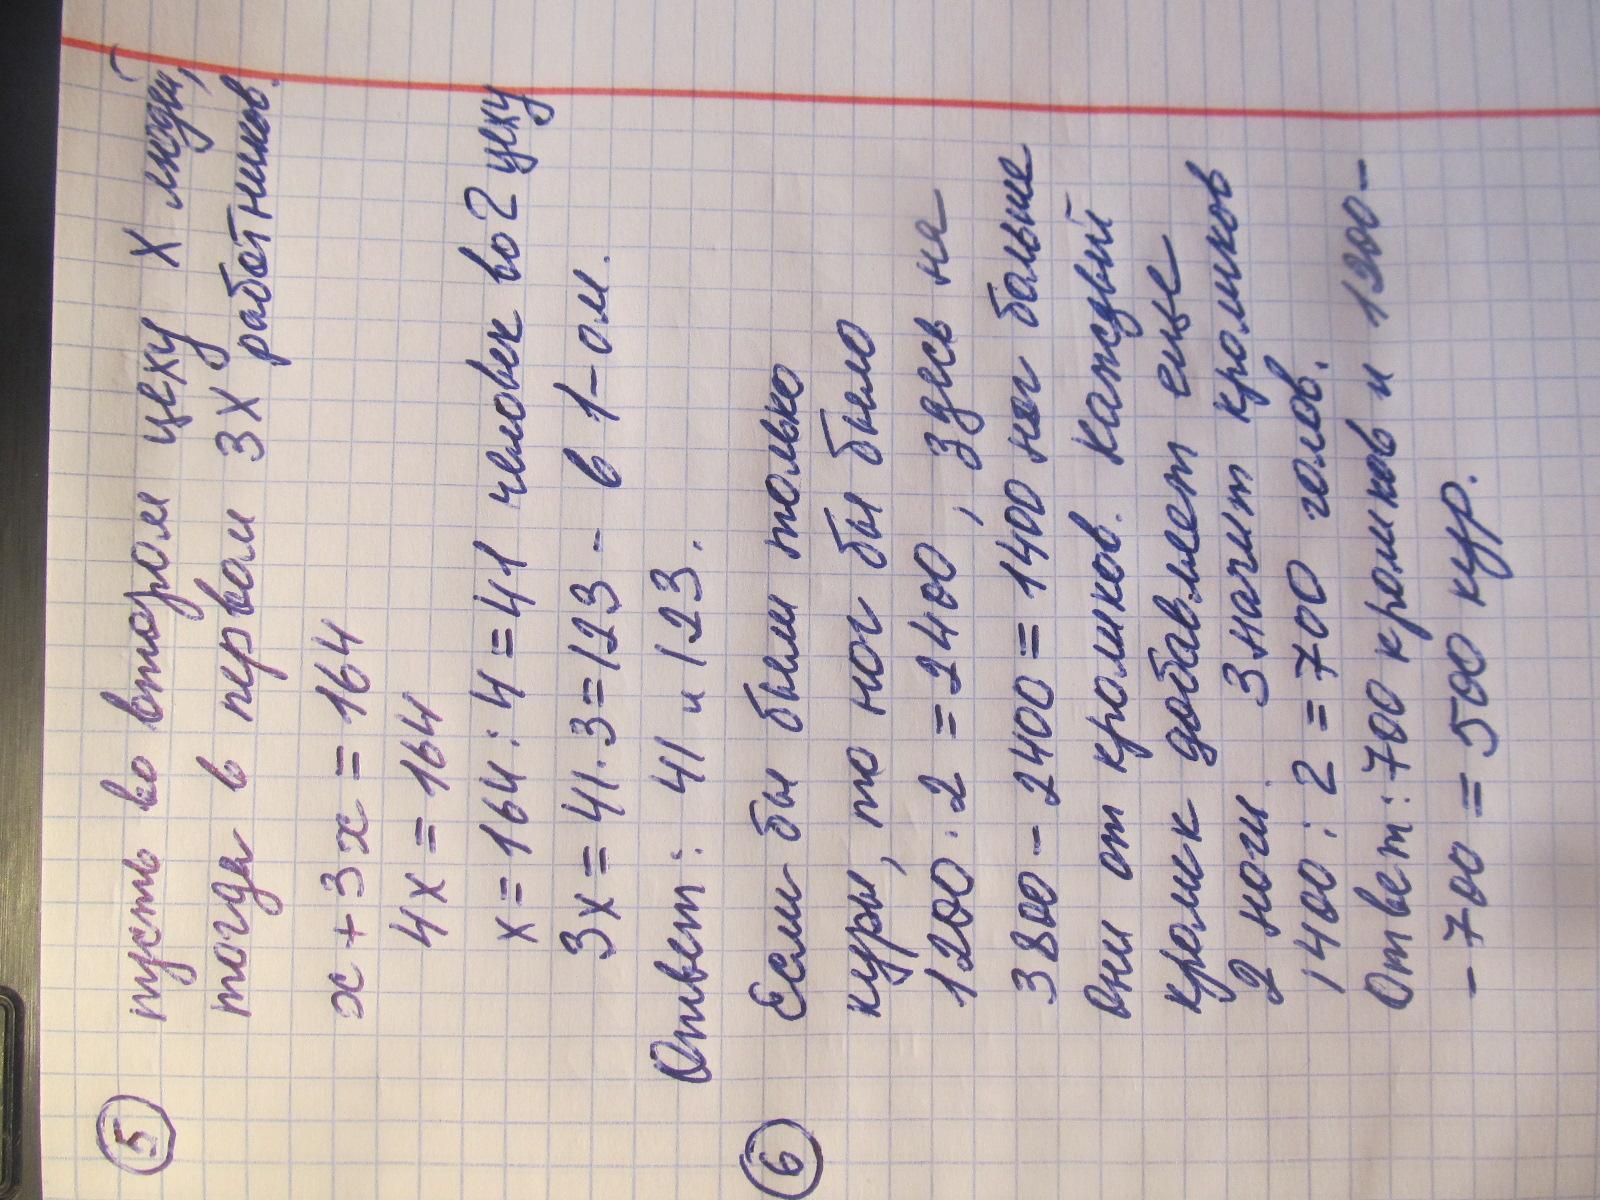 5
пусть во втором цеху х людей,
тогда в первом 3х работников.
х + 3х = 164
4х = 164
х = 164 : 4 = 41 человек во 2 цеху
3х = 41 · 3 = 123 - в 1-ом.
Ответ: 41 и 123.
6
Если бы были только
куры, то ног бы было
1200 · 2 = 2400, здесь не
3800 - 2400 = 1400 ног больше
Они от кроликов. Каждый
кролик добавляет еще
2 ноги. Значит кроликов
1400 : 2 = 700 голов.
Ответ: 700 кроликов и 1200 -
- 700 = 500 кур.